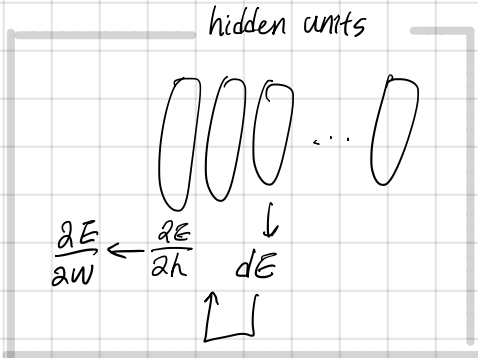 hidden units
...
∂E/∂W ← ∂E/∂h
↓
dE